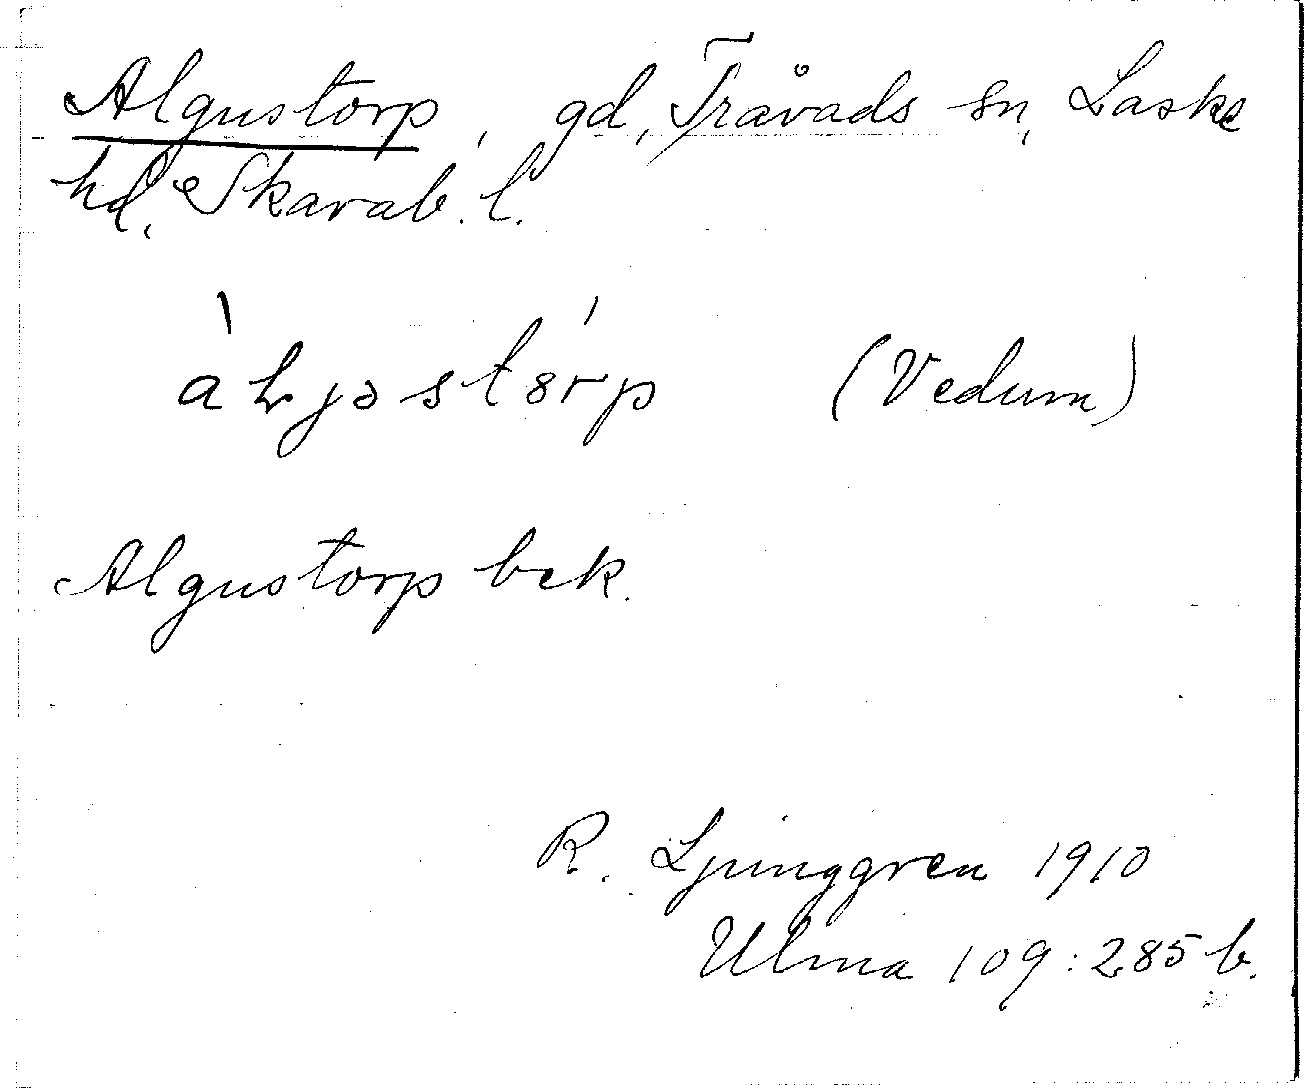 Algustorp, gd, Tråvads sn, Laske
hd, Skarab. l.
àLjəstərp (Vedum)
Algustorp bek.
R. Ljunggren 1910
Ulma 109:285 b.